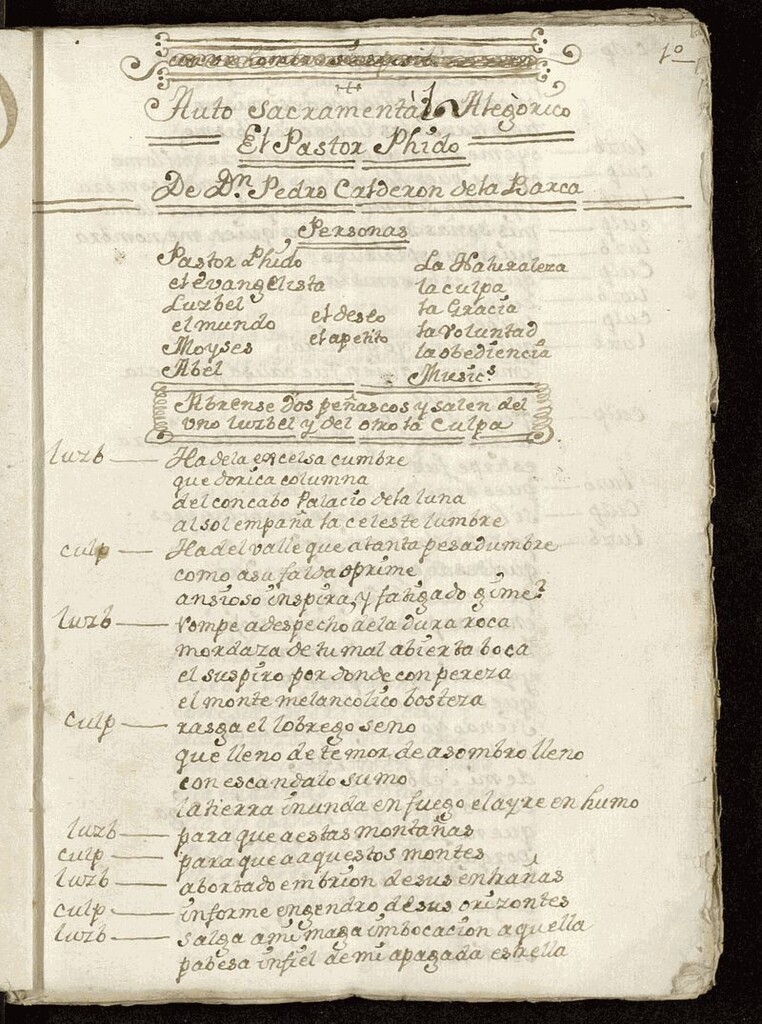 1º
Auto Sacramentál Alegòrico
El Pastor Phido
De Dn. Pedro Calderon dela Barca
Personas
Pastor Phido La Naturaleza
el evangelista la culpa
Luzbel el deseo la Gracia
el mundo el apetito la voluntad
Moyses la obediencia
Abel Musics.
Abrense dos peñascos y salen del
uno luzbel y del otro la Culpa
luzb — Ha dela excelsa cumbre
que dorica columna
del concabo Palacio dela luna
al sol empaña la celeste lumbre
culp — Ha del valle que atanta pesadumbre
como a su falda oprime
ansioso inspira, y fatigado gime
luzb — rompe a despecho dela dura roca
mordaza de tu mal abierta boca
el suspiro por donde con pereza
el monte melancolico bosteza
culp — rasga el lobrego seno
que lleno de temor de asombro lleno
con escandalo sumo
la tierra inunda en fuego el ayre en humo
luzb — para que a estas montañas
culp — para que a aquestos montes
luzb — abortado embrion de sus entrañas
culp — informe engendro de sus orizontes
luzb — salga a mi maga imbocacion aquella
pabesa infiel de mi apagada estrella